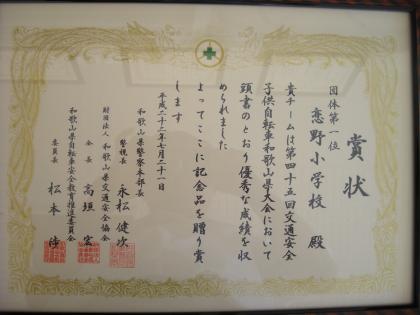 賞状
団体第一位
恋野小学校 殿
貴チームは第四十五回交通安全
子供自転車和歌山県大会において
頭書のとおり優秀な成績を収
められました
よってここに記念品を贈り賞
します
平成二十二年七月二十一日
和歌山県警察本部長
警視長 永松健次
財団法人 和歌山県交通安全協会
会長 高垣宏
和歌山県自転車安全教育推進委員会
委員長 松本